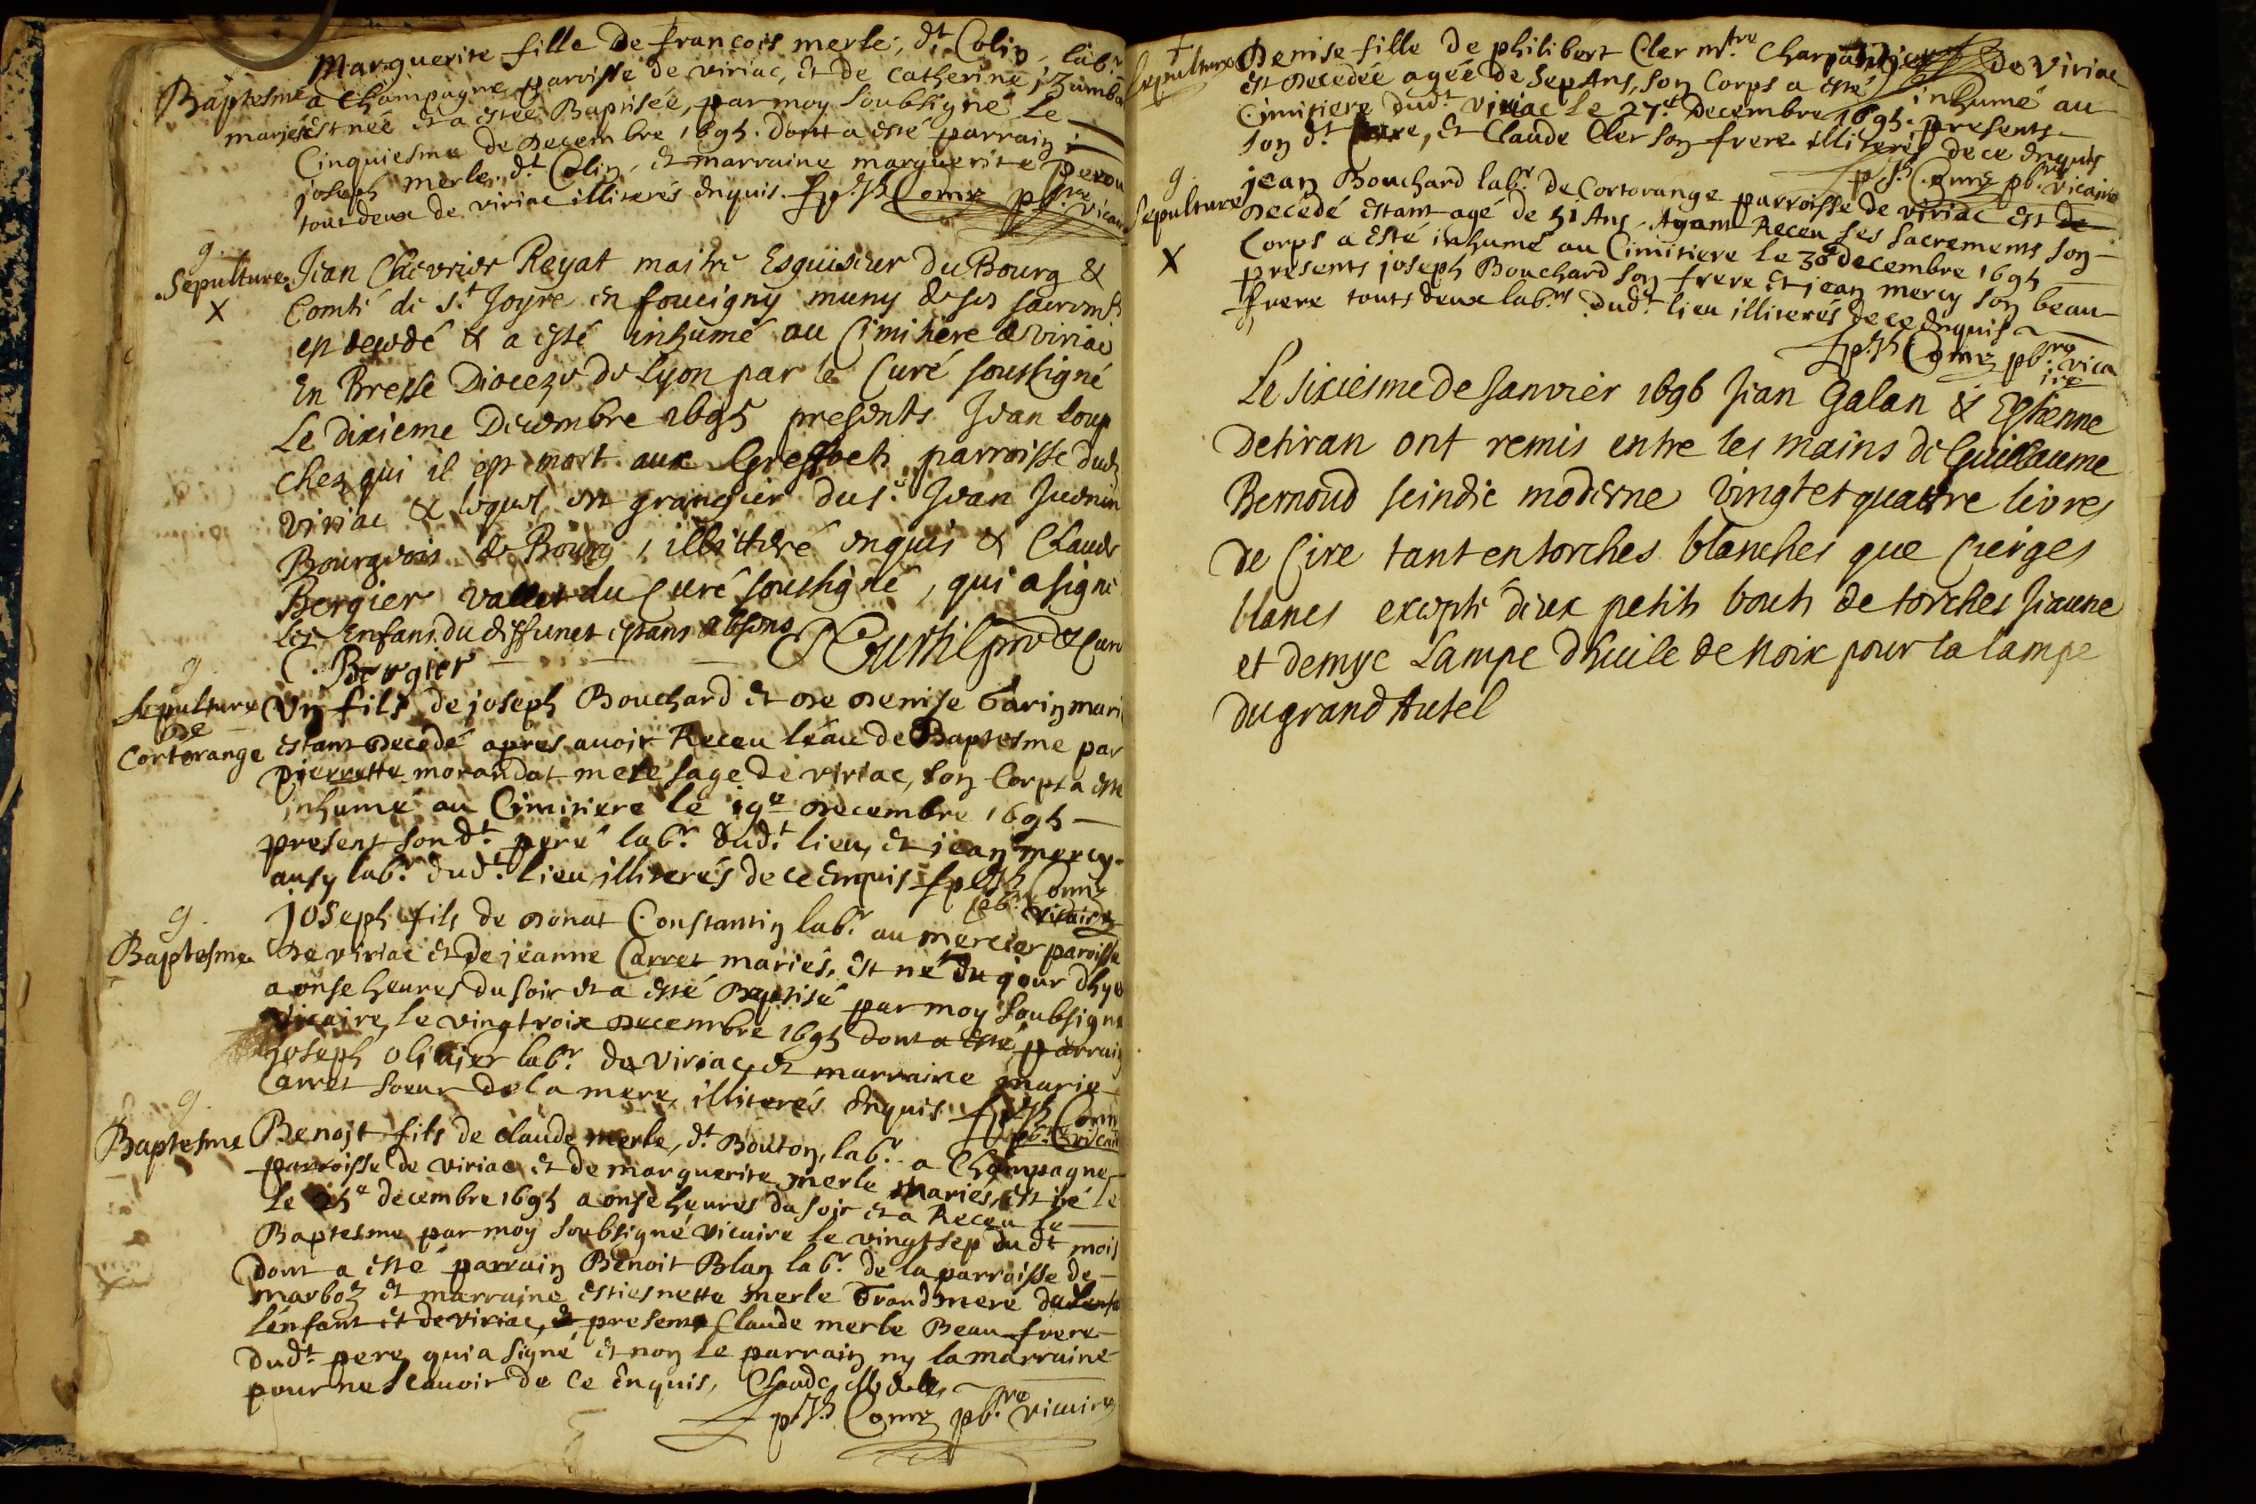 Marguerite fille de françois merle, dt Colin, labr
Baptesme a Champagne parroisse de viriac, et de catherine
mariés est née et a estée Baptisée, par moy soubsigné le
Cinquiesme de Decembre 1695. dont a esté parrain
joseph merle dt Colin, et marraine marguerite
tout deux de viriac illiterés enquis. Comz pbre vicaire
9.
Sepulture Jean Chevrier Reyat maitre Esguisieur du Bourg &
X
Comté de St Joyre en foucigny muny de ses sacremts
est decedé & a esté inhumé au Cimitiere de viriac
En Bresse Dioceze de lyon par le Curé soussigné
Le dixieme Decembre 1695 presents Jean loup
chez qui il est mort aux Greffets parroisse dudt
viriac & lequel est grangier du sr Jean Juenin
Bourgeois de Bourg, illitteré enquis & Claude
Bergier vallet du Curé soussigné, qui a signé
les Enfans du deffunct estans absens
C. Bergier
9
Sepulture
de
Cortorange
Un fils de joseph Bouchard et de Denise Garin mari
estant decedé apres avoir Receu l'eau de Baptesme par
pierrette morandat mere sage de viriac, son Corps a esté
inhumé au Cimitiere le 19e decembre 1695
present son dt pere labr dudt lieu, et jean mercy
ausy labr dudt lieu illiterés de ce Enquis Comz
pbre vicaire
9.
Baptesme
joseph fils de Donat Constantin labr au mercier paroisse
de viriac et de jeanne Carret mariés, est né du jour d'hyer
a onse heures du soir et a esté Baptisé par moy soubsigné
vicaire le vingtroix decembre 1695 dont a esté parrain
joseph olivier labr de viriac et marraine marie
Carret soeur de la mere, illiterés enquis Comz
pbre vicaire
9.
Baptesme
Benoit fils de claude merle, dt Bouton, labr a Champagne
parroisse de viriac et de marguerite merle mariés, est né le
le 25e decembre 1695 a onse heures du soir et a Receu le
Baptesme par moy soubsigné vicaire le vingtsep dudt mois
dont a esté parrain Benoit Blan labr de la parroisse de
marboz et marraine estiesnette merle Grandmere
l'enfant et de viriac, & present Claude merle Beau frere
dudt pere qui a signé et non le parrain ny la marraine
pour ne scavoir de ce Enquis, Claude Merle
Comz pbre vicaire
Sepulture Denise fille de philibert Cler mtre Charpantier de Viriac
est decedée agée de Sept Ans, son Corps a esté inhumé au
Cimitiere dudt viriac le 27e decembre 1695. presents
son dt pere, et Claude Cler son frere illiterés de ce enquis
Comz pbre vicaire
9.
Sepulture
X
jean Bouchard labr de Cortorange parroisse de viriac est de
decedé estant agé de 51 Ans, Ayant Receu ses Sacrements son
Corps a esté inhumé au Cimitiere le 30e decembre 1695
presents joseph Bouchard son frere et jean mercy son beau
frere touts deux labrs dudt lieu illiterés de ce enquis
Comz pbre vica
ire
Le sixiesme de Janvier 1696 Jean Galan & Estienne
Detiran ont remis entre les mains de Guillaume
Bernoud scindic moderne vingt et quattre livres
de Cire tant en torches blanches que Cierges
blancs excepté deux petits bouts de torches Jaune
et demye Lampe d'huile de noix pour la lampe
du grand Autel